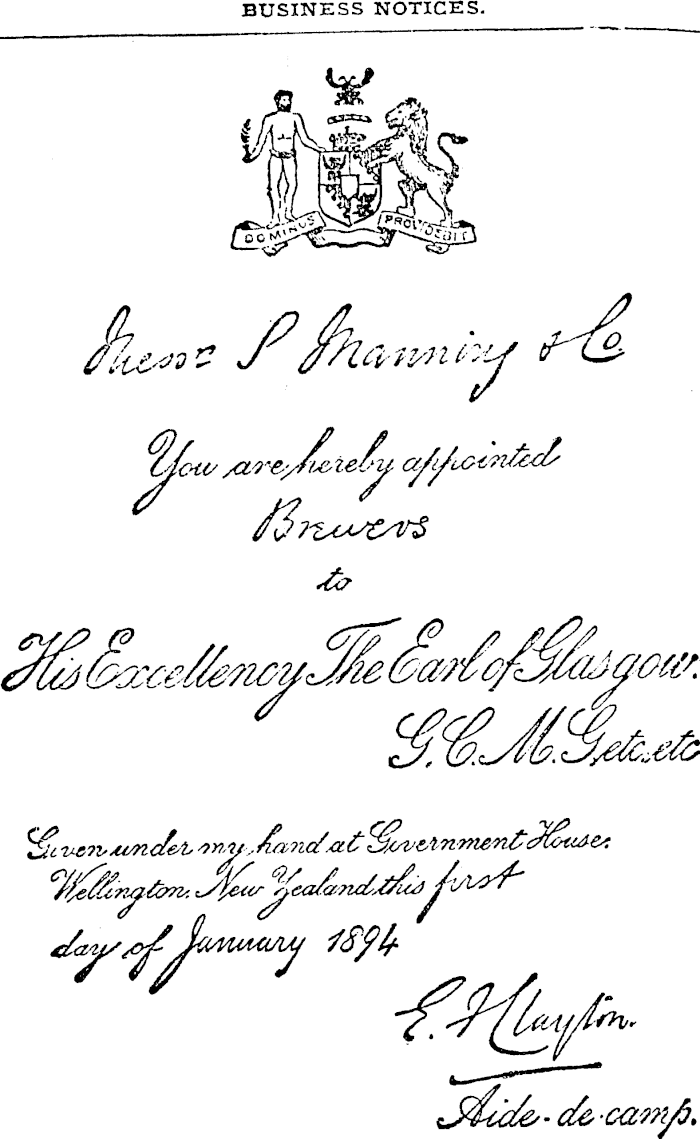 BUSINESS NOTICES.
DOMINUS PROVIDEBIT
Messrs S Manning & Co.
You are hereby appointed
Brewers
to
His Excellency The Earl of Glasgow.
G.C.M.G. etc. etc
Given under my hand at Government House.
Wellington. New Zealand this first
day of January 1894
E. H Clayton.
Aide-de-camp.